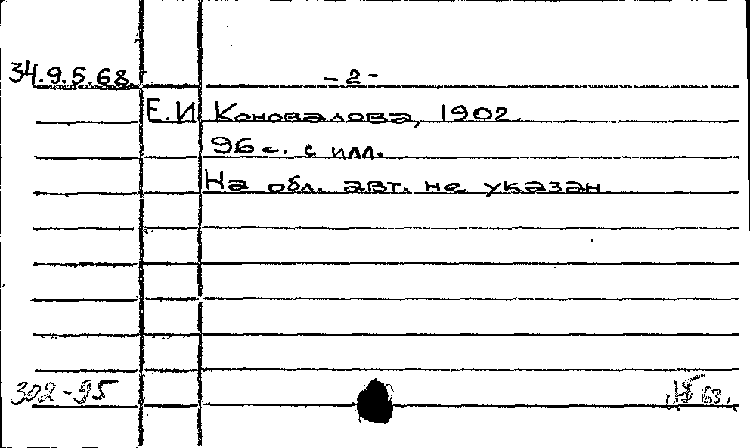 34.9.5.68. -2-
Е.И Коновалова, 1902
96 с. с илл.
На обл. авт. не указан
302-95